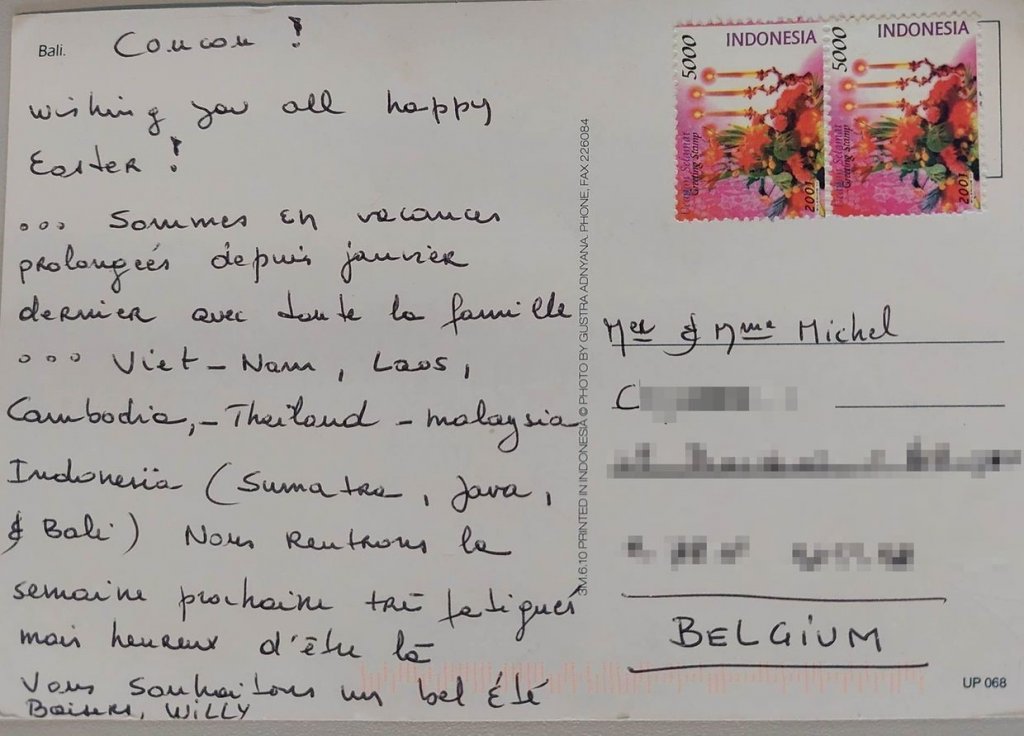 Bali.
Coucou !
wishing you all happy
Easter !
... Sommes en vacances
prolongées depuis janvier
dernier avec toute la famille
... Viet-Nam, Laos,
Cambodia,-Thailand - malaysia
Indonesia (Sumatra, Java,
& Bali) Nous rentrons la
semaine prochaine très fatigués
mais heureux d'être là
Vous souhaitons un bel Été
Baisers, WILLY
3M.6.10 PRINTED IN INDONESIA © PHOTO BY GUSTRA ADNYANA. PHONE, FAX 226084
5000 INDONESIA
Prangko Selamat
Greeting Stamp
2001
5000 INDONESIA
Prangko Selamat
Greeting Stamp
2001
Mer & Mme Michel
C
BELGIUM
UP 068